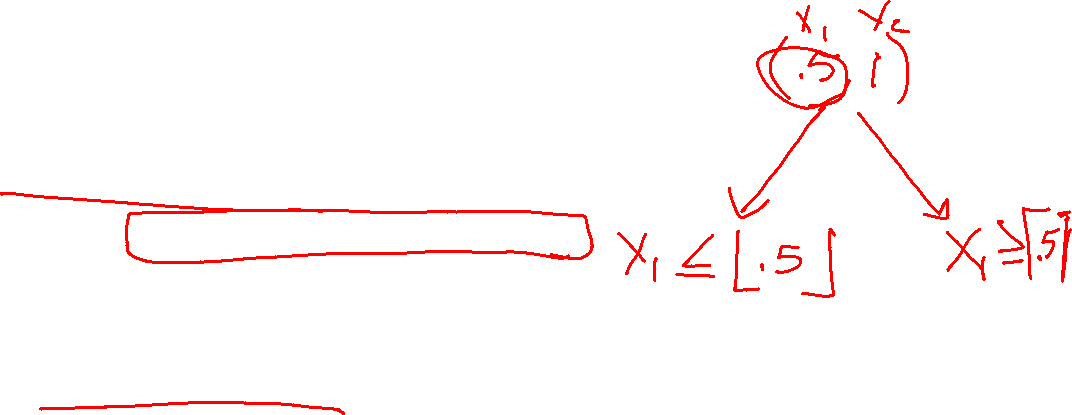 x₁ x₂
(.5 1)
x₁ ≤ ⌊.5⌋ x₁ ≥ ⌈.5⌉